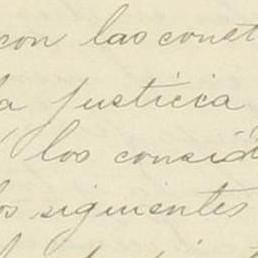 con las const
la justicia
los consid
los siguientes